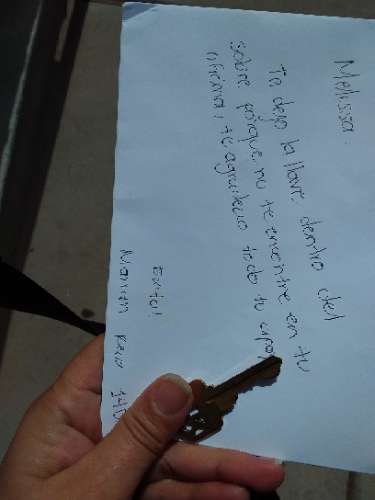 Melissa.
Te dejo la llave dentro del
sobre porque no te encontre en tu
oficina, te agradezco todo tu apoy